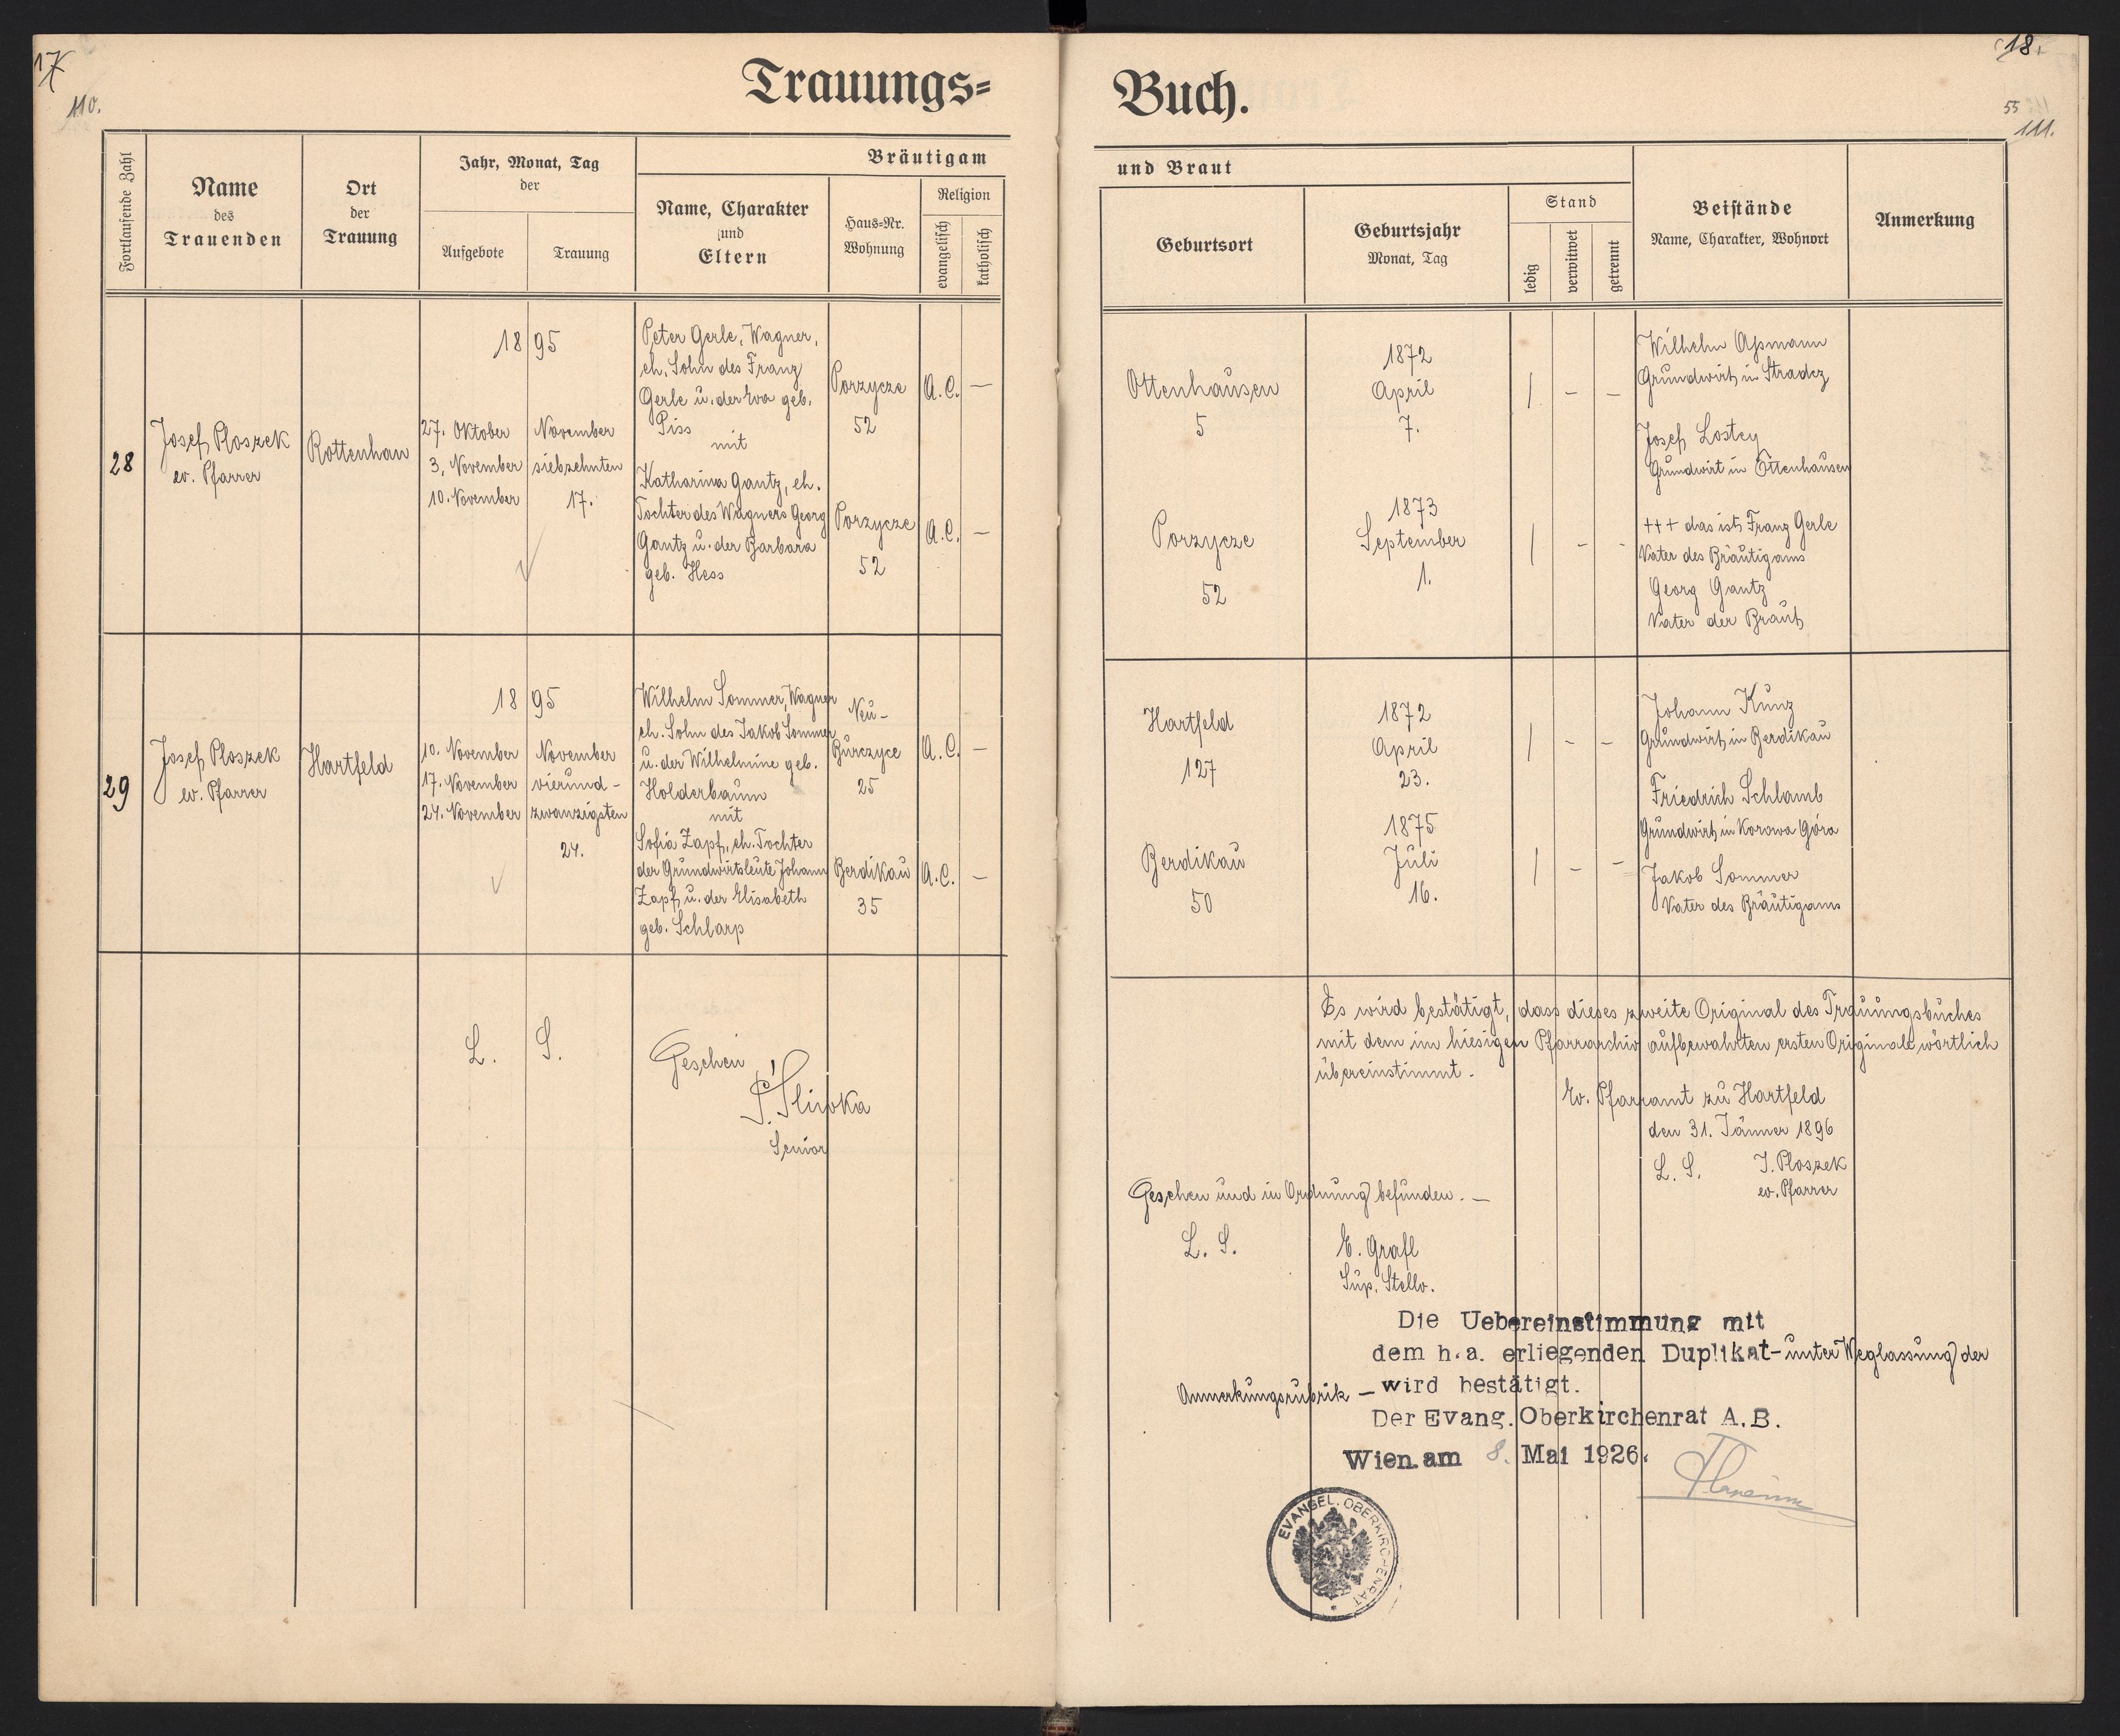 17
110.
Trauungs=
Fortlaufende Zahl
Name
des
Trauenden
Ort
der
Trauung
Jahr, Monat, Tag
der
Aufgebote
Trauung
Bräutigam
Name, Charakter
und
Eltern
Haus=Nr.
Wohnung
Religion
evangelisch
katholisch
28
Josef Ploszek
ev. Pfarrer
Rottenhan
1895
27. Oktober
3. November
10. November
November
siebzehnten
17.
Peter Gerle, Wagner,
eh. Sohn des Franz
Gerle u. der Eva geb.
Piss
mit
Katharina Gantz, eh.
Tochter des Wagners Georg
Gantz u. der Barbara
geb. Hess
Porzycze
52
A.C. —
Porzycze
52
A.C. —
29
Josef Ploszek
ev. Pfarrer
Hartfeld
1895
10. November
17. November
24. November
November
vierund-
zwanzigsten
24.
Wilhelm Sommer, Wagner
eh. Sohn des Jakob Sommer
u. der Wilhelmine geb.
Holderbaum
mit
Sofia Zapf, eh. Tochter
der Grundwirtsleute Johann
Zapf u. der Elisabeth
geb. Schlarp
Neu-
Burczyce
25
A.C. —
Berdikau
35
A.C. —
L. S.
Gesehen
P. Śliwka
Senior
18.
55
111.
Buch.
und Braut
Geburtsort
Geburtsjahr
Monat, Tag
Stand
ledig
verwitwet
getrennt
Beistände
Name, Charakter, Wohnort
Anmerkung
Ottenhausen
5
1872
April
7.
/ - -
Wilhelm Aßmann
Grundwirt in Stradcz
Josef Lostey
Grundwirt in Ottenhausen
Porzycze
52
1873
September
1.
/ - -
+++ das ist Franz Gerle
Vater des Bräutigams
Georg Gantz
Vater der Braut
Hartfeld
127
1872
April
23.
/ - -
Johann Kunz
Grundwirt in Berdikau
Friedrich Schlamb
Grundwirt in Korowa Góra
Berdikau
50
1875
Juli
16.
/ - -
Jakob Sommer
Vater des Bräutigams
Es wird bestätigt, dass dieses zweite Original des Trauungsbuches
mit dem im hiesigen Pfarrarchiv aufbewahrten ersten Originale wörtlich
übereinstimmt.
Ev. Pfarramt zu Hartfeld
den 31. Jänner 1896
L. S. J. Ploszek
ev. Pfarrer
Gesehen und in Ordnung befunden. —
L. S. E. Grafl
Sup. Stellv.
Die Uebereinstimmung mit
dem h.a. erliegenden Duplikat - unter Weglassung der
Anmerkungsrubrik — wird bestätigt.
Der Evang. Oberkirchenrat A.B.
Wien am 8. Mai 1926.
EVANGEL. OBERKIRCHENRAT *